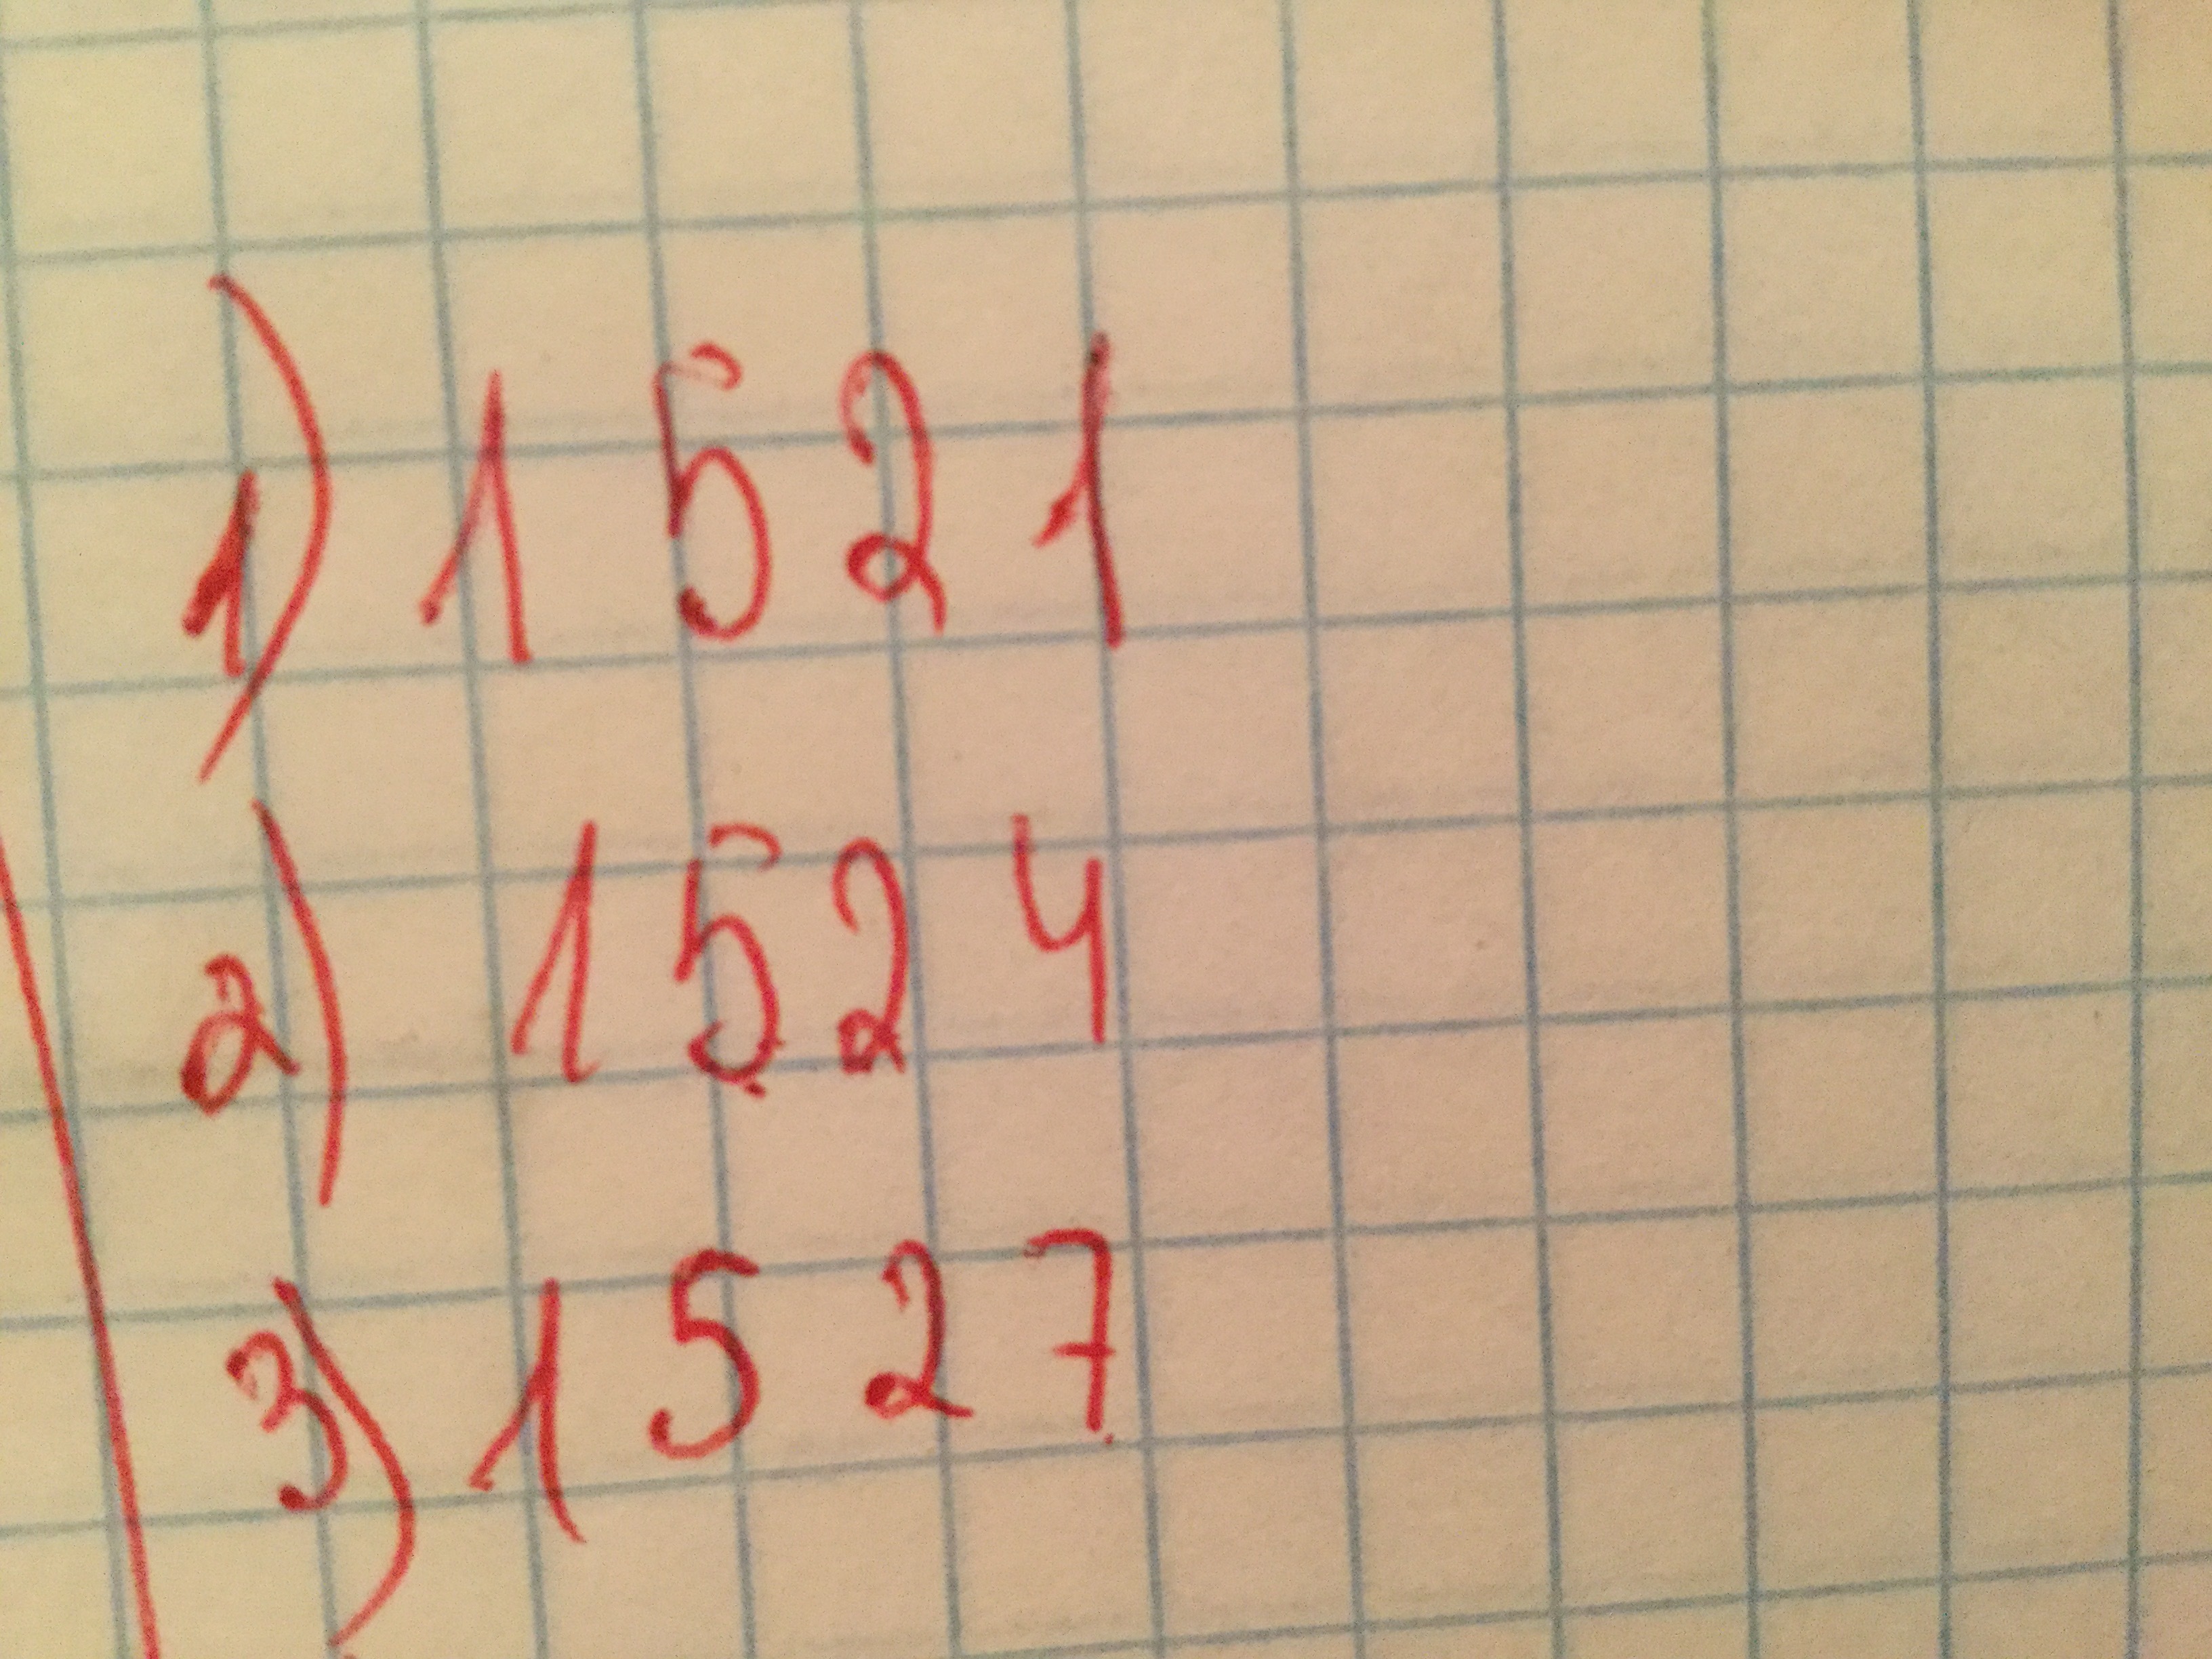 1) 1521
2) 1524
3) 1527